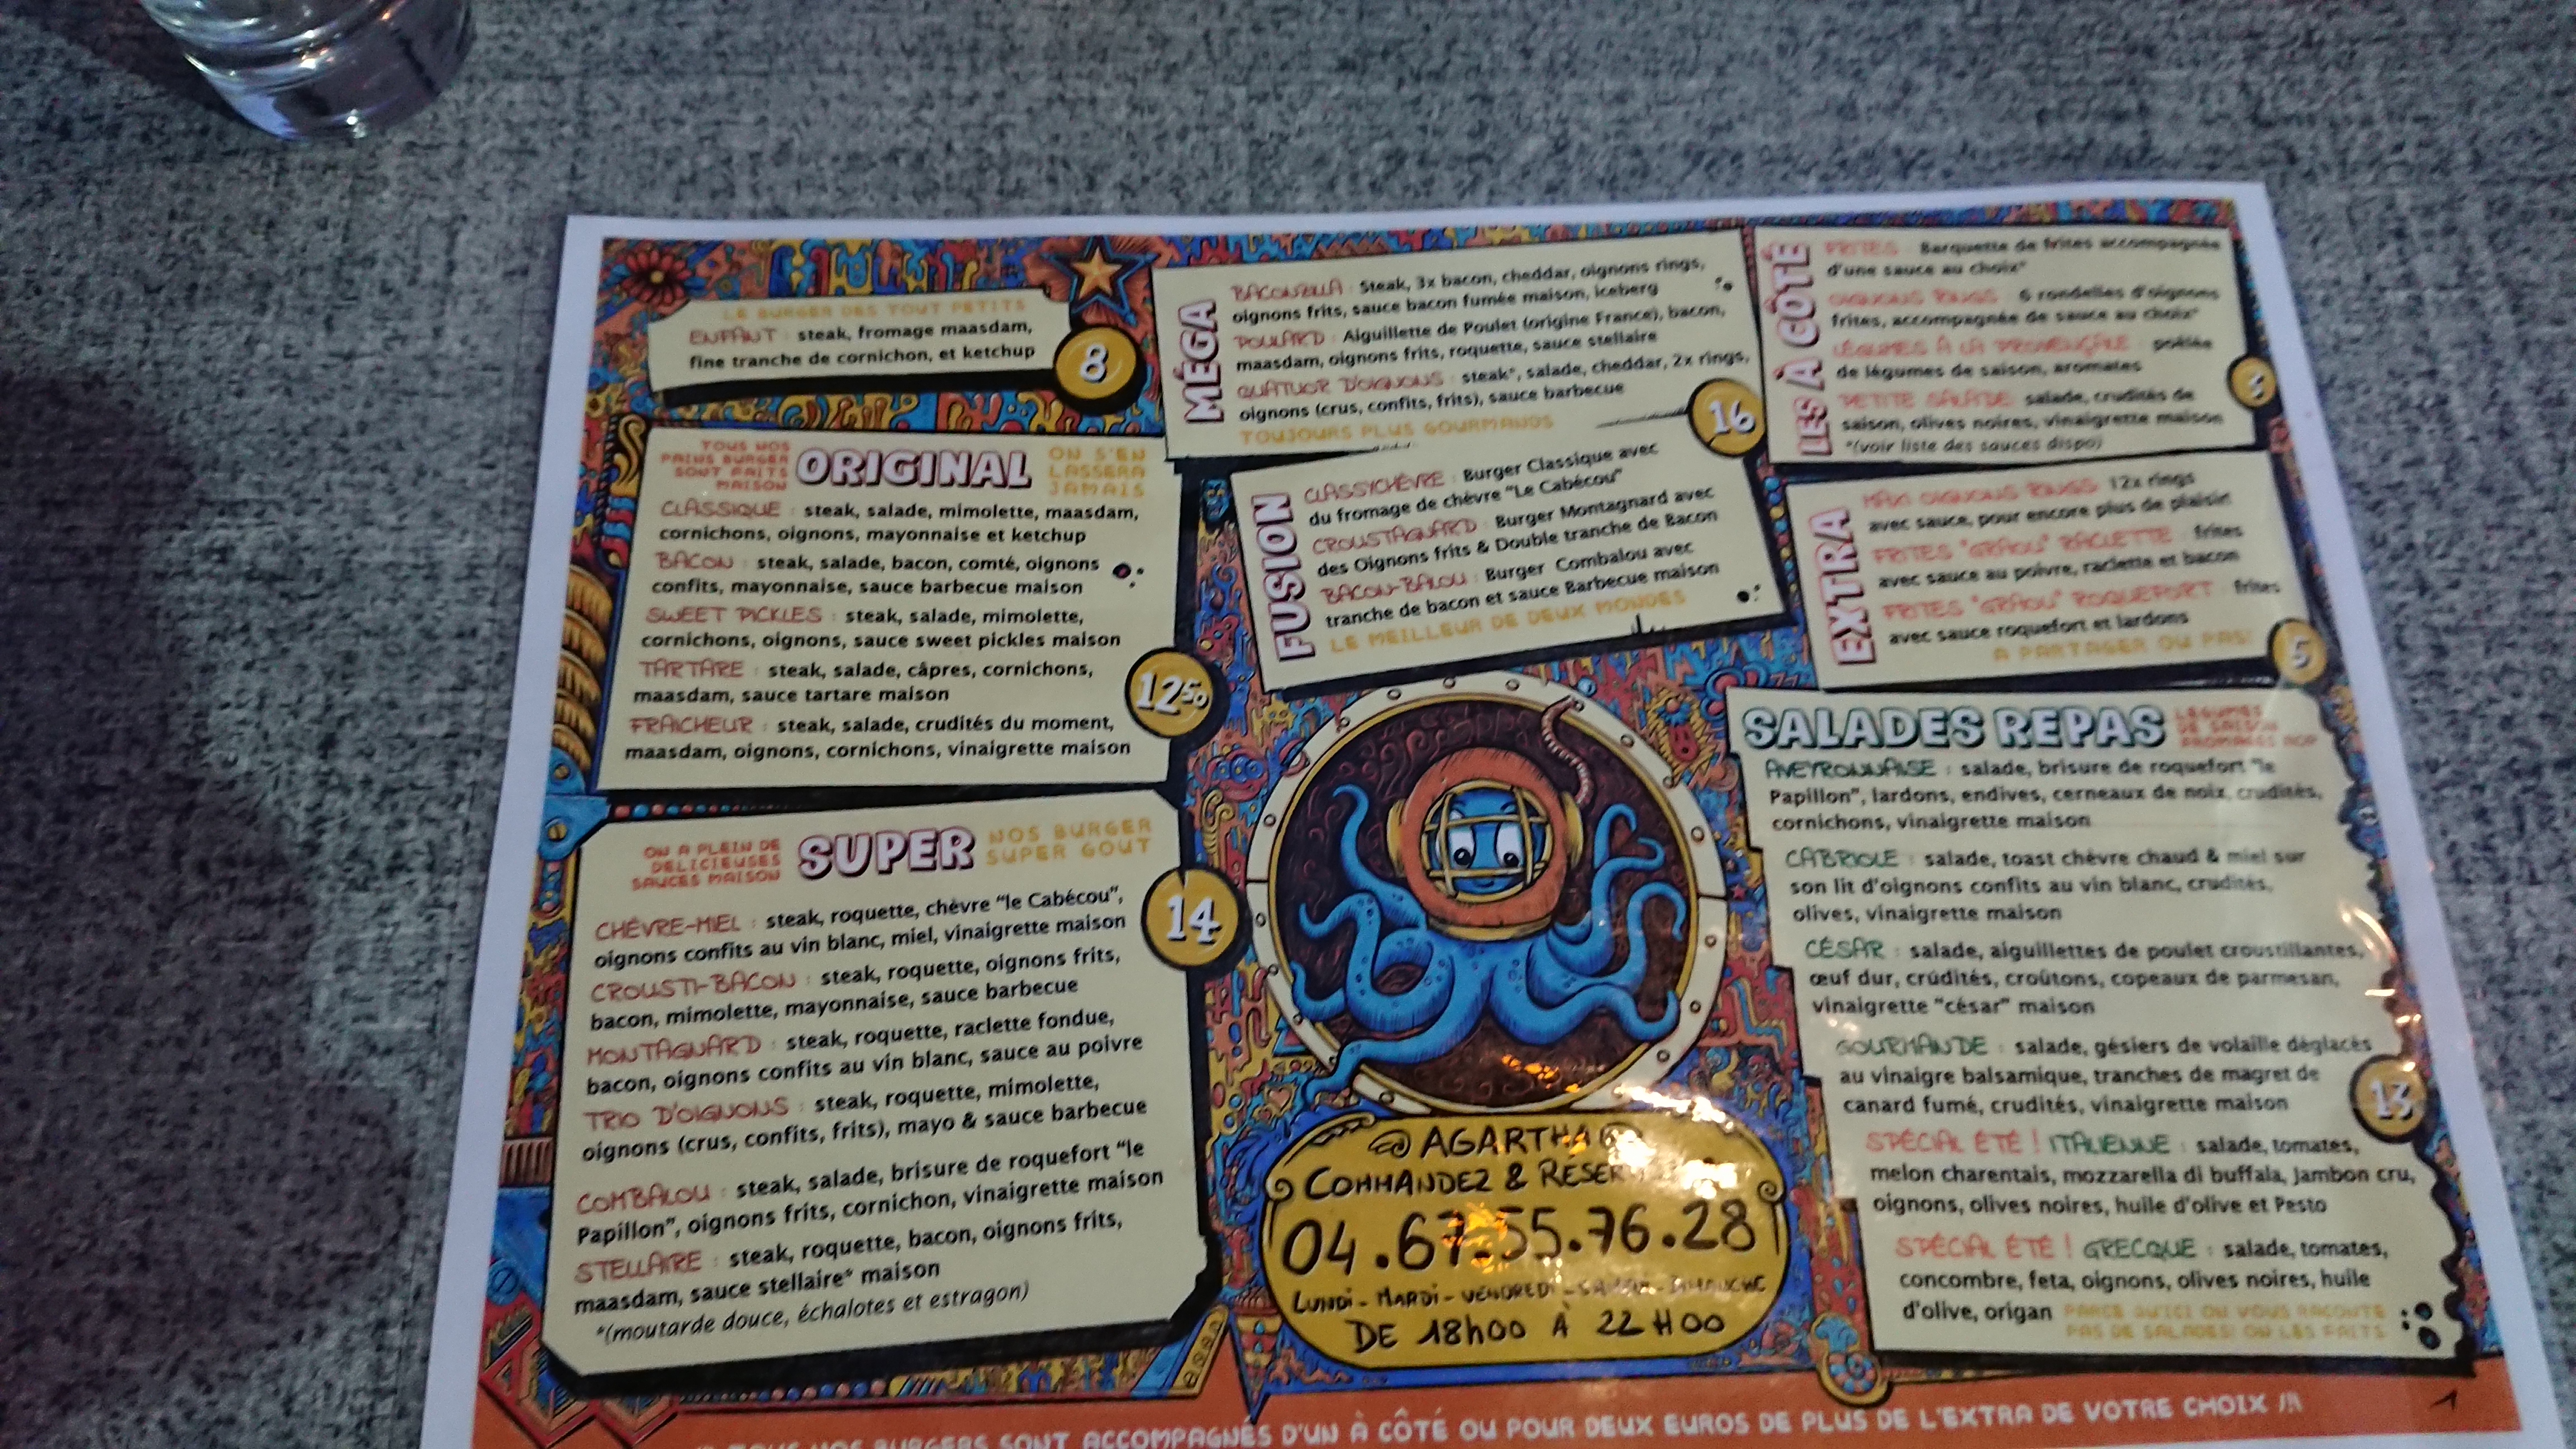 LE BURGER DES TOUT PETITS
ENFANT : steak, fromage maasdam,
fine tranche de cornichon, et ketchup
8
TOUS NOS
PAINS BURGER
SONT FAITS
MAISON
ORIGINAL
ON S'EN
LASSERA
JAMAIS
CLASSIQUE : steak, salade, mimolette, maasdam,
cornichons, oignons, mayonnaise et ketchup
BACON : steak, salade, bacon, comté, oignons
confits, mayonnaise, sauce barbecue maison
SWEET PICKLES : steak, salade, mimolette,
cornichons, oignons, sauce sweet pickles maison
TARTARE : steak, salade, câpres, cornichons,
maasdam, sauce tartare maison
FRAICHEUR : steak, salade, crudités du moment,
maasdam, oignons, cornichons, vinaigrette maison
12.50
ON A PLEIN DE
DELICIEUSES
SAUCES MAISON
SUPER
NOS BURGER
SUPER GOUT
CHÈVRE-MIEL : steak, roquette, chèvre "le Cabécou",
oignons confits au vin blanc, miel, vinaigrette maison
CROUSTI-BACON : steak, roquette, oignons frits,
bacon, mimolette, mayonnaise, sauce barbecue
MONTAGNARD : steak, roquette, raclette fondue,
bacon, oignons confits au vin blanc, sauce au poivre
TRIO D'OIGNONS : steak, roquette, mimolette,
oignons (crus, confits, frits), mayo & sauce barbecue
COMBALOU : steak, salade, brisure de roquefort "le
Papillon", oignons frits, cornichon, vinaigrette maison
STELLAIRE : steak, roquette, bacon, oignons frits,
maasdam, sauce stellaire* maison
*(moutarde douce, échalotes et estragon)
14
MÉGA
BACONZILLA : Steak, 3x bacon, cheddar, oignons rings,
oignons frits, sauce bacon fumée maison, iceberg
POULARD : Aiguillette de Poulet (origine France), bacon,
maasdam, oignons frits, roquette, sauce stellaire
QUATUOR D'OIGNONS : steak*, salade, cheddar, 2x rings,
oignons (crus, confits, frits), sauce barbecue
TOUJOURS PLUS GOURMANDS
16
FUSION
CLASSICHÈVRE : Burger Classique avec
du fromage de chèvre "Le Cabécou"
CROUSTAGNARD : Burger Montagnard avec
des Oignons frits & Double tranche de Bacon
BACON-BALOU : Burger Combalou avec
tranche de bacon et sauce Barbecue maison
LE MEILLEUR DE DEUX MONDES
LES À CÔTÉ
FRITES : Barquette de frites accompagnée
d'une sauce au choix*
OIGNONS RINGS : 6 rondelles d'oignons
frites, accompagnée de sauce au choix*
LÉGUMES À LA PROVENÇALE : poêlée
de légumes de saison, aromates
PETITE SALADE : salade, crudités de
saison, olives noires, vinaigrette maison
*(voir liste des sauces dispo)
EXTRA
MAXI OIGNONS RINGS 12x rings
avec sauce, pour encore plus de plaisir
FRITES "GRAOU" RACLETTE : frites
avec sauce au poivre, raclette et bacon
FRITES "GRAOU" ROQUEFORT : frites
avec sauce roquefort et lardons
A PARTAGER OU PAS!
5
SALADES REPAS
LÉGUMES
DE SAISON
FROMAGES AOP
AVEYRONNAISE : salade, brisure de roquefort "le
Papillon", lardons, endives, cerneaux de noix, crudités,
cornichons, vinaigrette maison
CABRIOLE : salade, toast chèvre chaud & miel sur
son lit d'oignons confits au vin blanc, crudités,
olives, vinaigrette maison
CÉSAR : salade, aiguillettes de poulet croustillantes,
œuf dur, crúdités, croûtons, copeaux de parmesan,
vinaigrette "césar" maison
GOURMANDE : salade, gésiers de volaille déglacés
au vinaigre balsamique, tranches de magret de
canard fumé, crudités, vinaigrette maison
13
SPÉCIAL ÉTÉ ! ITALIENNE : salade, tomates,
melon charentais, mozzarella di buffala, Jambon cru,
oignons, olives noires, huile d'olive et Pesto
SPÉCIAL ÉTÉ ! GRECQUE : salade, tomates,
concombre, feta, oignons, olives noires, huile
d'olive, origan
PARCE QU'ICI ON VOUS RACONTE
PAS DE SALADES! ON LES FAITS
AGARTHA
COMMANDEZ &
04.67.55.76.28
LUNDI - MARDI - VENDREDI - SAMEDI - DIMANCHE
DE 18H00 À 22H00
TOUS NOS BURGERS SONT ACCOMPAGNÉS D'UN À CÔTÉ OU POUR DEUX EUROS DE PLUS DE L'EXTRA DE VOTRE CHOIX !!!